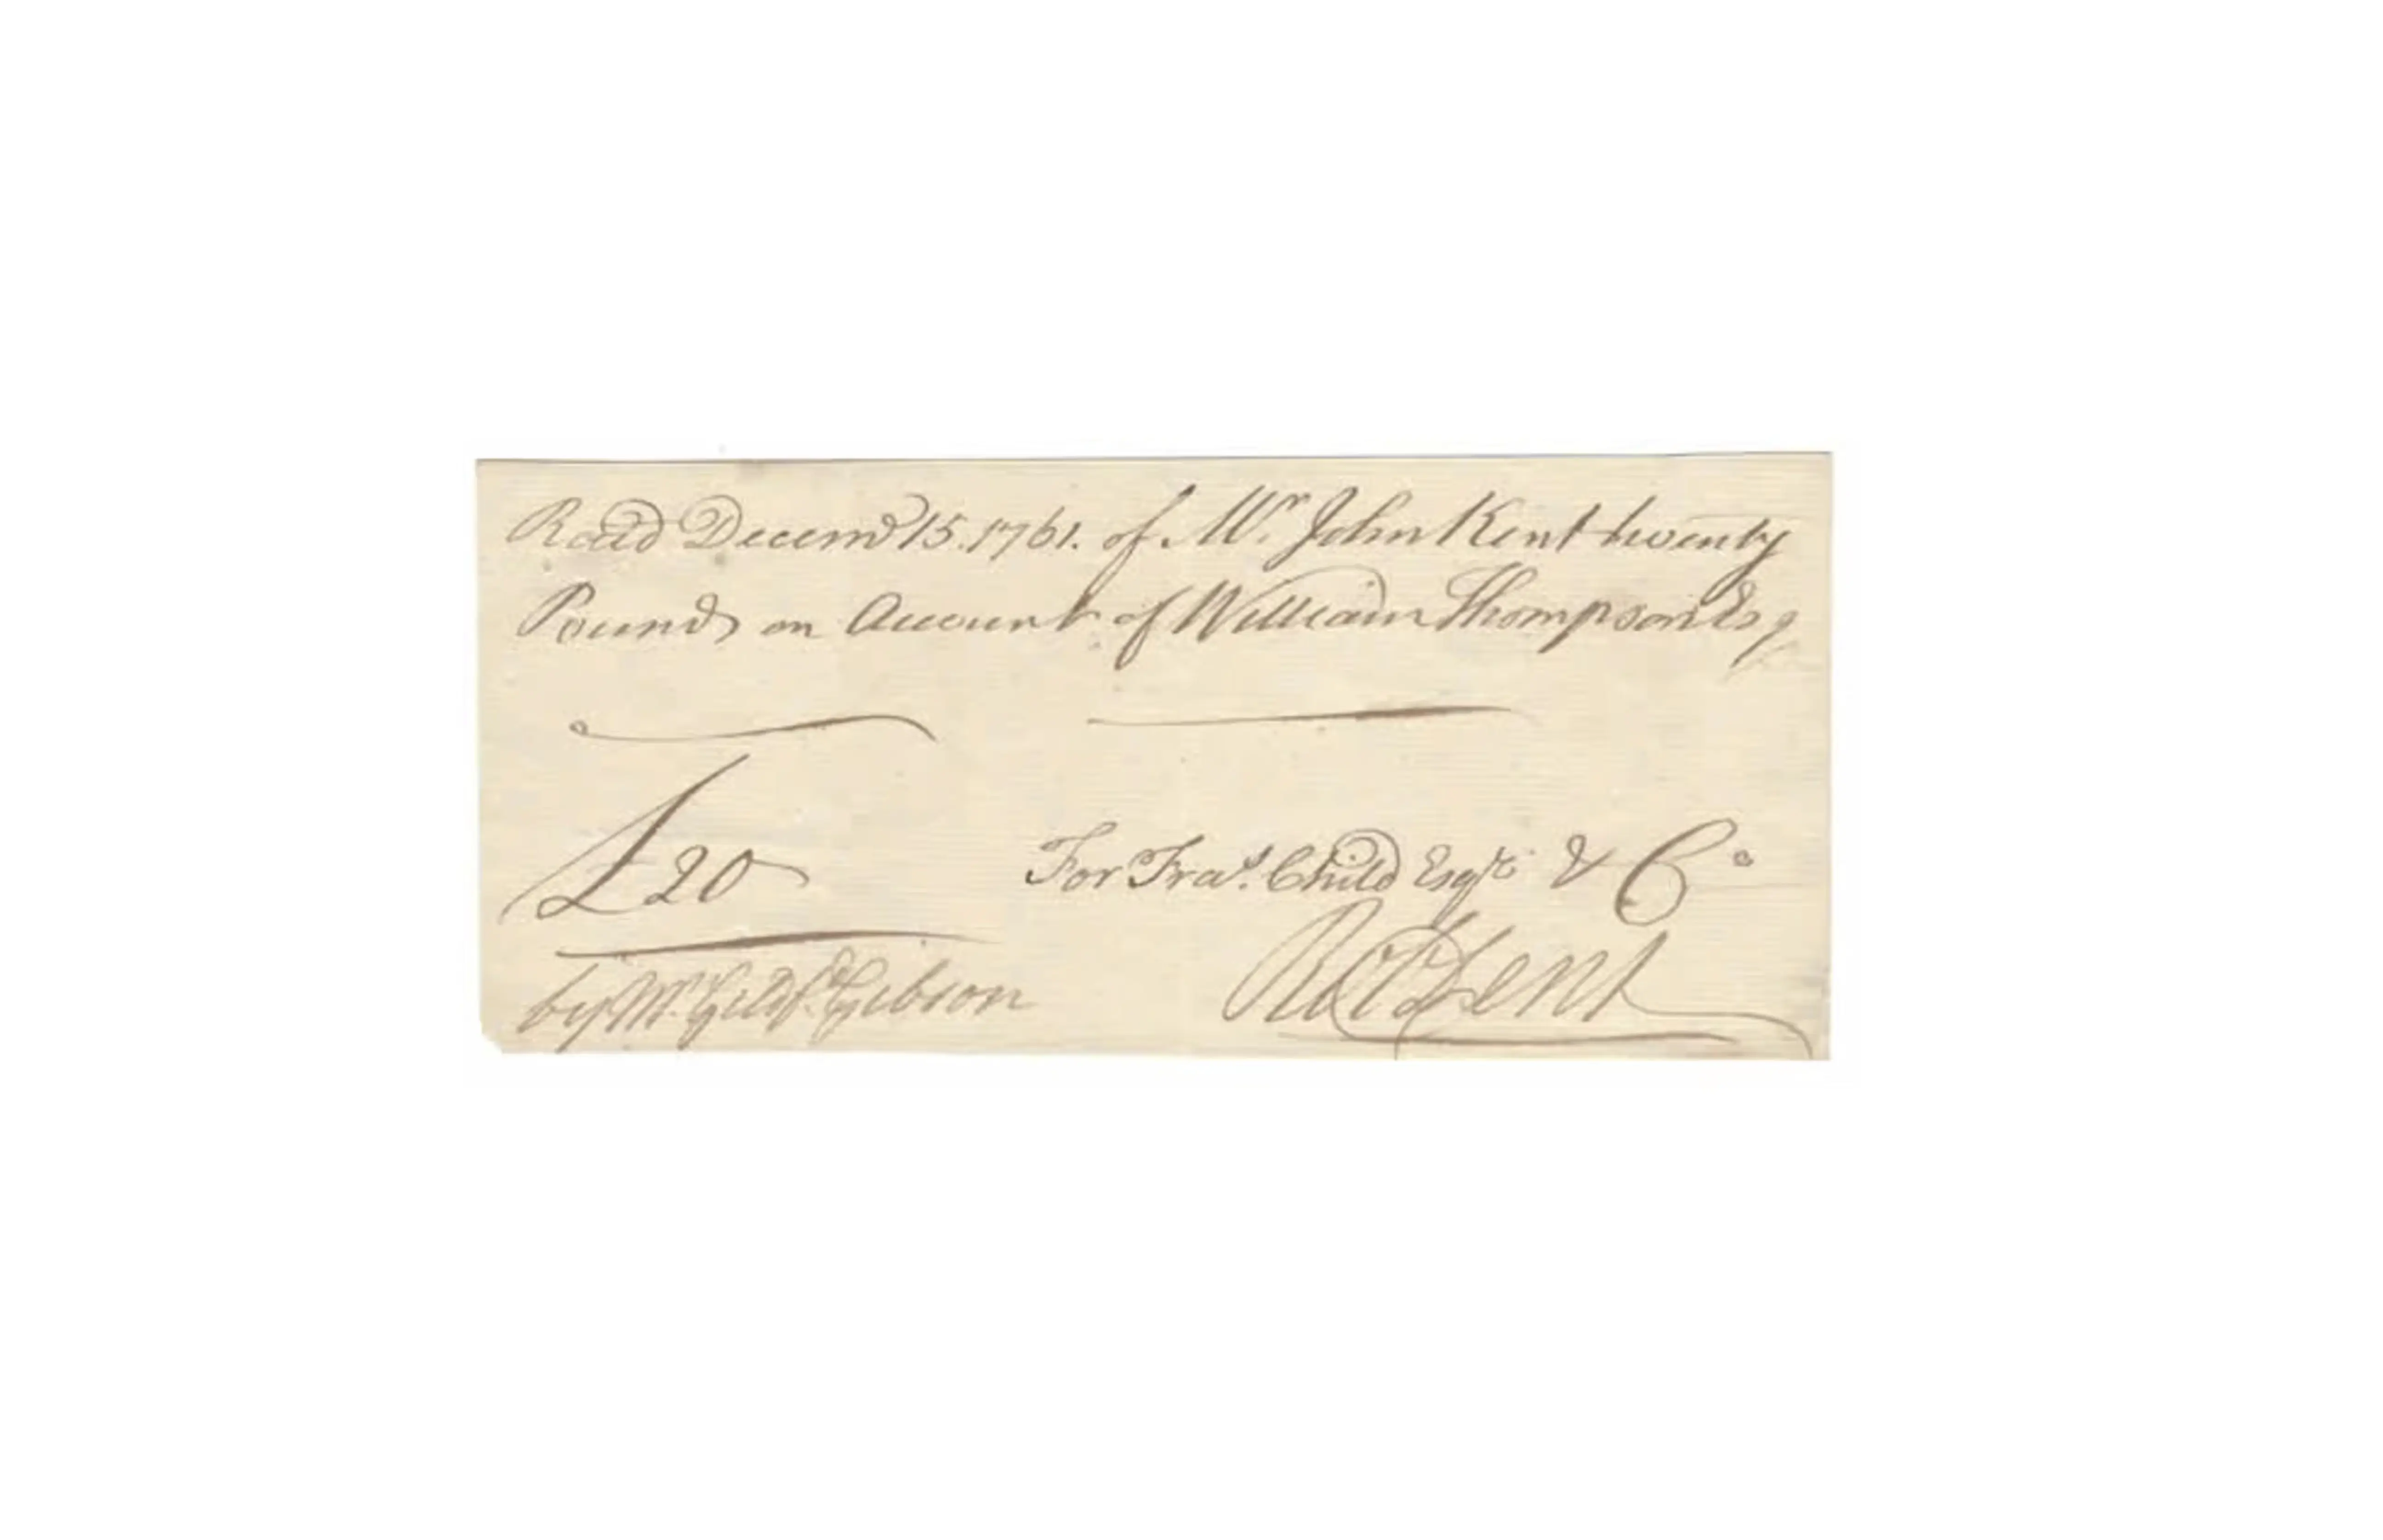 Recd Decemr 15. 1761. of Mr. John Kent twenty
Pounds on Account of William Thompson Esq
£20
For Fras. Child Esqr & Co
by Mr. Gibson
Robt Dent